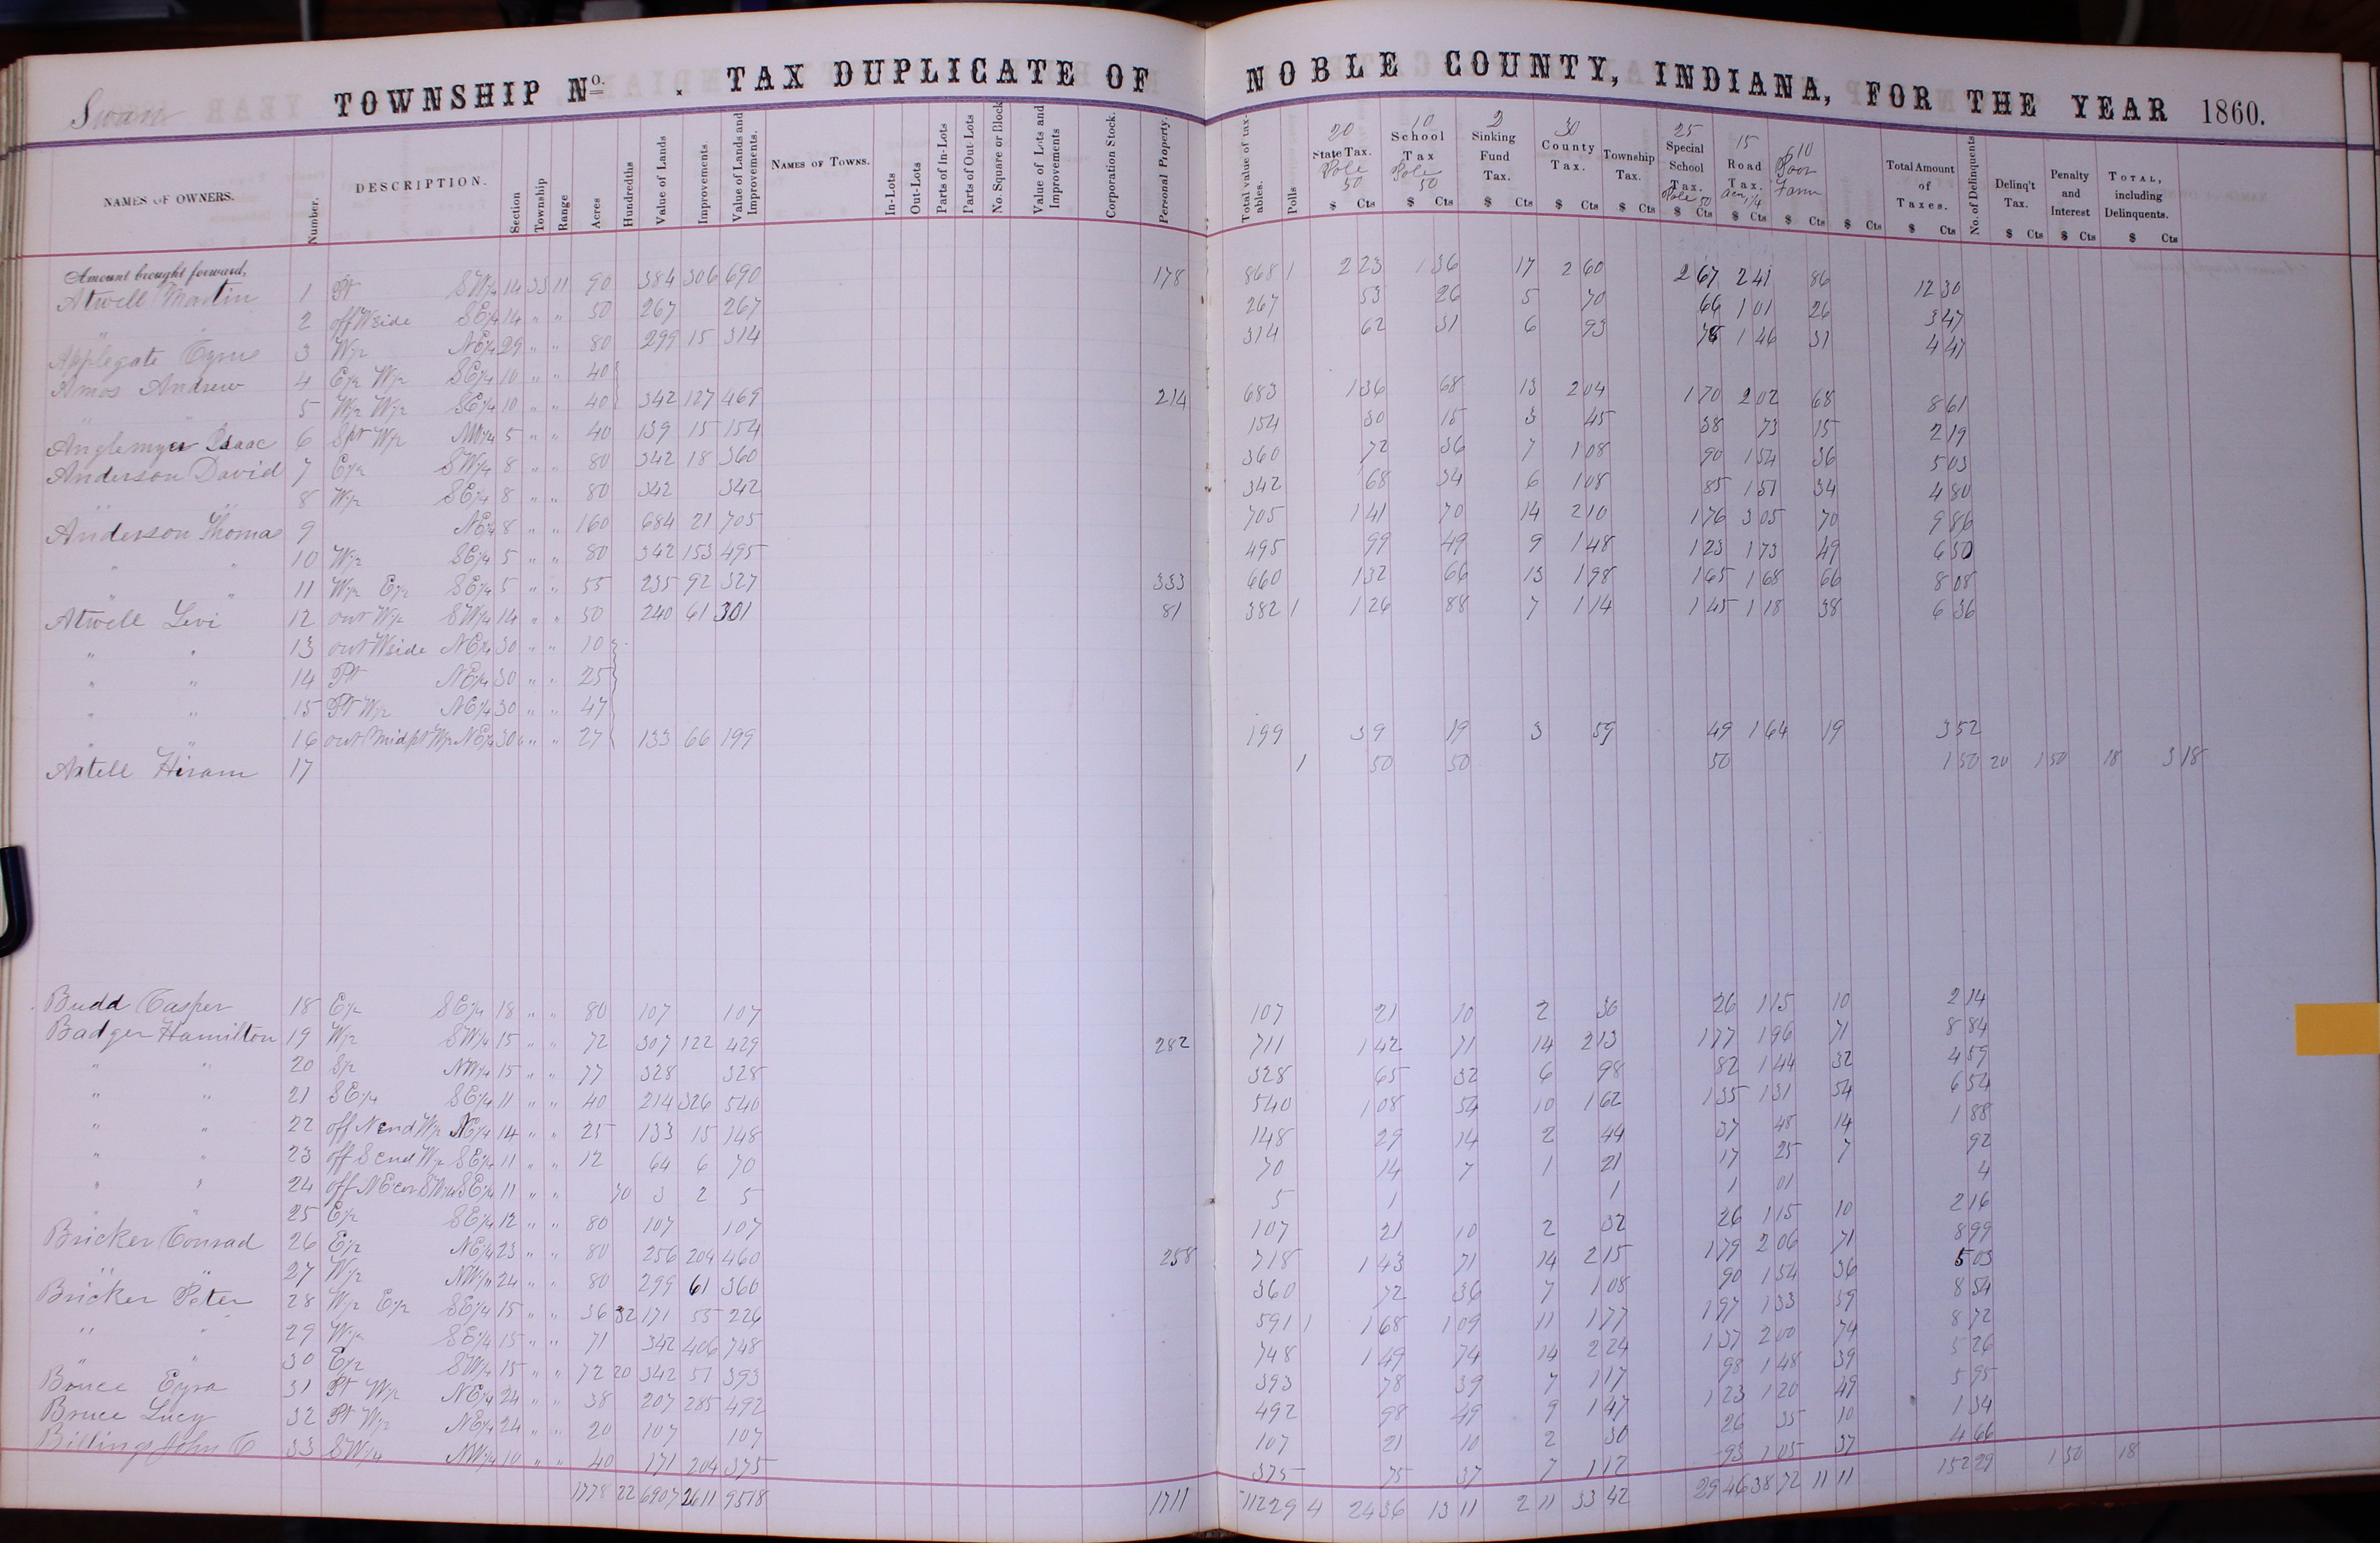 Swan TOWNSHIP No. . TAX DUPLICATE OF NOBLE COUNTY, INDIANA, FOR THE YEAR 1860.
NAMES OF OWNERS. Number. DESCRIPTION. Section Township Range Acres Hundredths Value of Lands Improvements. Value of Lands and Improvements. NAMES OF TOWNS. In-Lots Out-Lots Parts of In-Lots Parts of Out-Lots No. Square or Block Value of Lots and Improvements Corporation Stock. Personal Property. Total value of taxables. Polls 20 State Tax. Pole 50 10 School Tax Pole 50 2 Sinking Fund Tax. 30 County Tax. Township Tax. 25 Special School Tax. Pole 50 15 Road Tax. 10 Poor Farm Total Amount of Taxes. No. of Delinquents Delinq't Tax. Penalty and Interest TOTAL, including Delinquents.
$ Cts $ Cts $ Cts $ Cts $ Cts $ Cts $ Cts $ Cts $ Cts $ Cts $ Cts $ Cts $ Cts
Amount brought forward,
Atwell Martin 1 Pt SW1/4 14 33 11 90 384 306 690 178 868 1 2 23 1 36 17 2 60 2 67 2 41 86 12 30
" " 2 off W side SE1/4 14 " " 50 267 267 267 53 26 5 70 66 1 01 26 3 47
Applegate Cyrus 3 W1/2 NE1/4 29 " " 80 299 15 314 314 62 31 6 93 78 1 46 31 4 47
Amos Andrew 4 E1/2 W1/2 SE1/4 10 " " 40
" " 5 W1/2 W1/2 SE1/4 10 " " 40 342 127 469 214 683 1 36 68 13 2 04 1 70 2 02 68 8 61
Anglemyer Isaac 6 Spt W1/2 NW1/4 5 " " 40 139 15 154 154 30 15 3 45 38 73 15 2 19
Anderson David 7 E1/2 SW1/4 8 " " 80 342 18 360 360 72 36 7 1 08 90 1 54 36 5 03
" " 8 W1/2 SE1/4 8 " " 80 342 342 342 68 34 6 1 08 85 1 51 34 4 80
Anderson Thomas 9 NE1/4 8 " " 160 684 21 705 705 1 41 70 14 2 10 1 76 3 05 70 9 86
" " 10 W1/2 SE1/4 5 " " 80 342 153 495 495 99 49 9 1 48 1 23 1 73 49 6 50
" " 11 W1/2 E1/2 SE1/4 5 " " 55 235 92 327 333 660 1 32 66 13 1 98 1 65 1 68 66 8 08
Atwell Levi 12 out W1/2 SW1/4 14 " " 50 240 61 301 81 382 1 1 26 88 7 1 14 1 45 1 18 38 6 36
" " 13 out W side NE1/4 30 " " 10
" " 14 Pt NE1/4 30 " " 25
" " 15 Pt W1/2 NE1/4 30 " " 47
" " 16 out Mid pt W1/2 NE1/4 30 " " 27 133 66 199 199 39 19 3 59 49 1 64 19 3 52
Axtell Hiram 17 1 50 50 50 1 50 20 1 50 18 3 18
Budd Casper 18 E1/2 SE1/4 18 " " 80 107 107 107 21 10 2 36 26 1 15 10 2 14
Badger Hamilton 19 W1/2 SW1/4 15 " " 72 307 122 429 282 711 1 42 71 14 2 13 1 77 1 96 71 8 84
" " 20 S1/2 NW1/4 15 " " 77 328 328 328 65 32 6 98 82 1 44 32 4 59
" " 21 SE1/4 SE1/4 11 " " 40 214 326 540 540 1 08 54 10 1 62 1 35 1 31 54 6 54
" " 22 off N end W1/2 NE1/4 14 " " 25 133 15 148 148 29 14 2 44 37 48 14 1 88
" " 23 off S end W1/2 SE1/4 11 " " 12 64 6 70 70 14 7 1 21 17 25 7 92
" " 24 off NE cor SW1/4 SE1/4 11 " " 70 3 2 5 5 1 1 1 01 4
" " 25 E1/2 SE1/4 12 " " 80 107 107 107 21 10 2 32 26 1 15 10 2 16
Bricker Conrad 26 E1/2 NE1/4 23 " " 80 256 204 460 258 718 1 43 71 14 2 15 1 79 2 06 71 8 99
" " 27 W1/2 NW1/4 24 " " 80 299 61 360 360 72 36 7 1 08 90 1 54 36 5 03
Bricker Peter 28 W1/2 E1/2 SE1/4 15 " " 36 32 171 55 226 591 1 1 68 1 09 11 1 77 1 97 1 33 59 8 54
" " 29 W1/2 SE1/4 15 " " 71 342 406 748 748 1 49 74 14 2 24 1 37 2 00 74 8 72
" " 30 E1/2 SW1/4 15 " " 72 20 342 51 393 393 78 39 7 1 17 98 1 48 39 5 26
Bruce Ezra 31 Pt W1/2 NE1/4 24 " " 38 207 285 492 492 98 49 9 1 47 1 23 1 20 49 5 95
Bruce Lucy 32 Pt W1/2 NE1/4 24 " " 20 107 107 107 21 10 2 30 26 35 10 1 34
Billings John C 33 SW1/4 NW1/4 10 " " 40 171 204 375 375 75 37 7 1 12 93 1 05 37 4 66
1778 22 6907 2611 9518 1711 11229 4 24 36 13 11 2 11 33 42 29 46 38 72 11 11 152 29 1 50 18